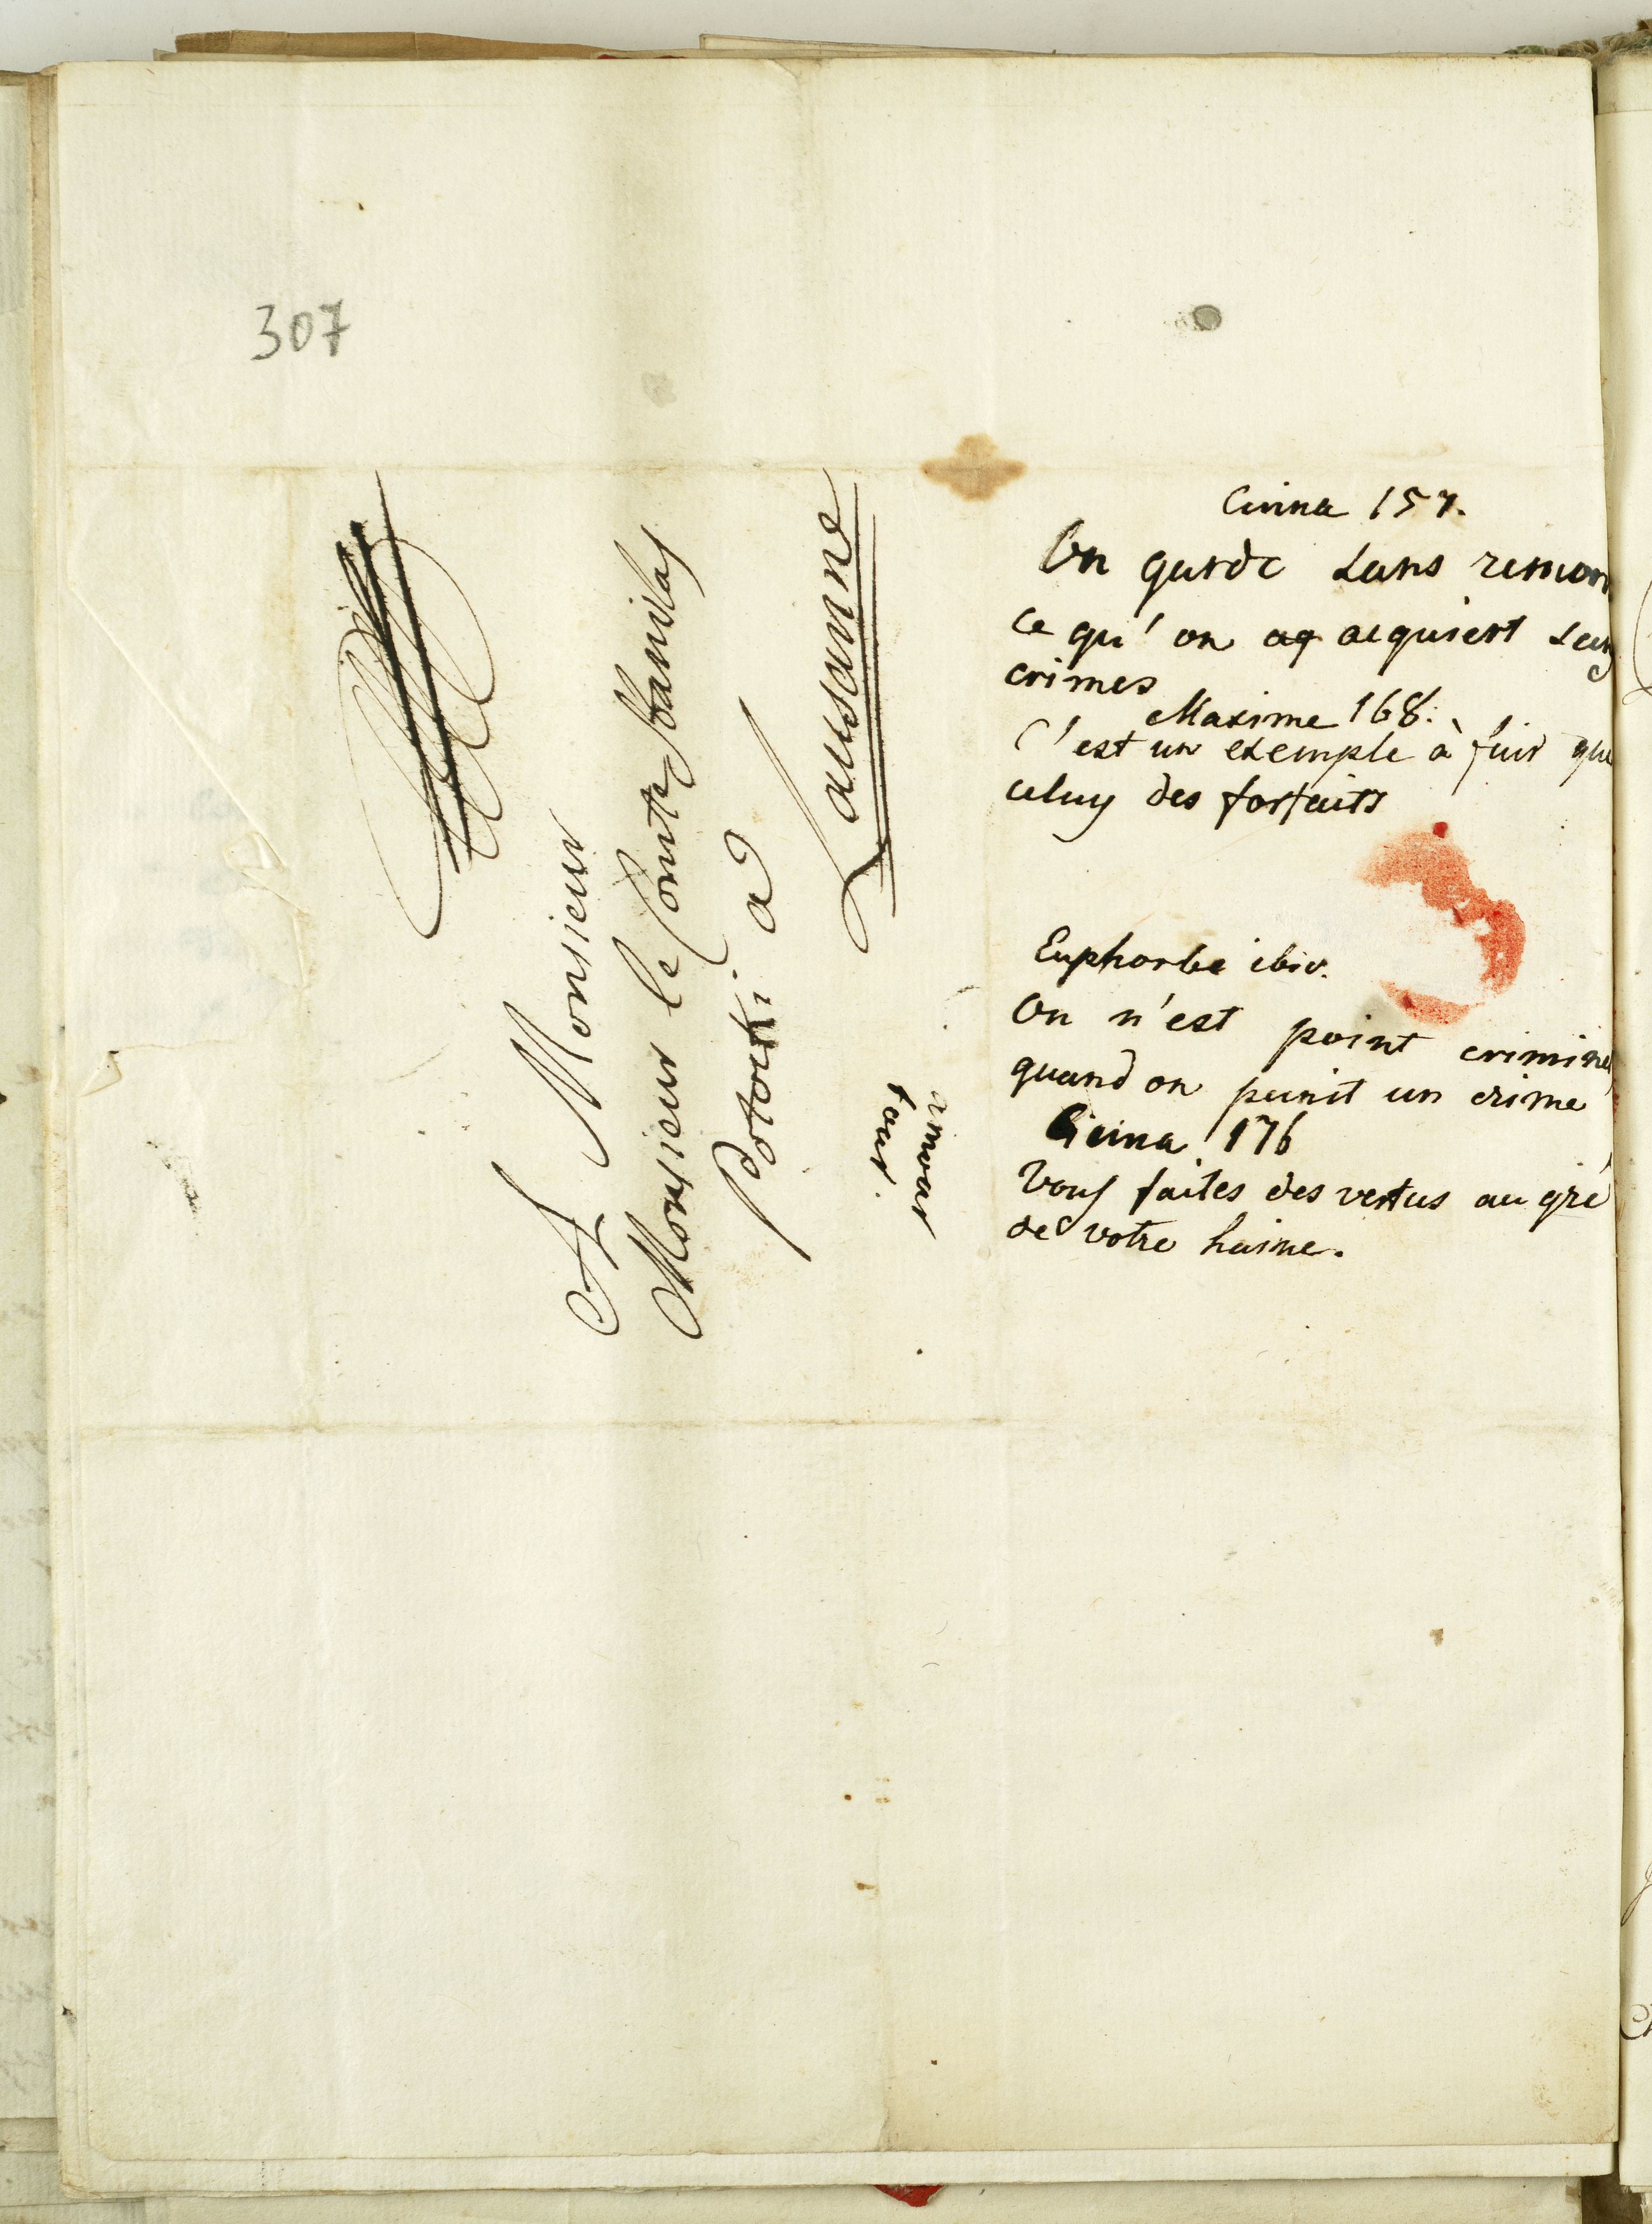 307
A Monsieur
Monsieur le Comte Stanislas
Potocki a
Lausanne
Cinna 157.
On garde sans remor
ce qu'on aq acquiert sans
crimes
Maxime 168.
C'est un exemple à fuir que
celuy des forfaits
Euphorbe ibid.
On n'est point criminel
quand on punit un crime
Cinna 176
Vous faites des vertus au gré
de votre haine.